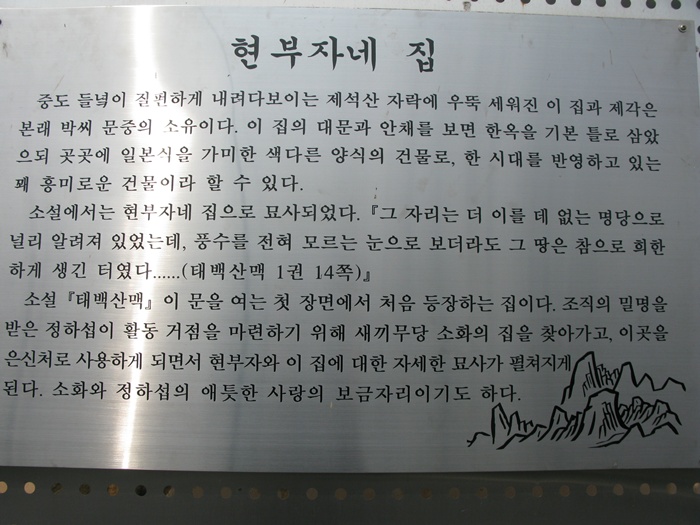 현부자네 집
중도 들녘이 질펀하게 내려다보이는 제석산 자락에 우뚝 세워진 이 집과 제각은
본래 박씨 문중의 소유이다. 이 집의 대문과 안채를 보면 한옥을 기본 틀로 삼았
으되 곳곳에 일본식을 가미한 색다른 양식의 건물로, 한 시대를 반영하고 있는
꽤 흥미로운 건물이라 할 수 있다.
소설에서는 현부자네 집으로 묘사되었다. 『그 자리는 더 이를 데 없는 명당으로
널리 알려져 있었는데, 풍수를 전혀 모르는 눈으로 보더라도 그 땅은 참으로 희한
하게 생긴 터였다......(태백산맥 1권 14쪽)』
소설 『태백산맥』이 문을 여는 첫 장면에서 처음 등장하는 집이다. 조직의 밀명을
받은 정하섭이 활동 거점을 마련하기 위해 새끼무당 소화의 집을 찾아가고, 이곳을
은신처로 사용하게 되면서 현부자와 이 집에 대한 자세한 묘사가 펼쳐지게
된다. 소화와 정하섭의 애틋한 사랑의 보금자리이기도 하다.